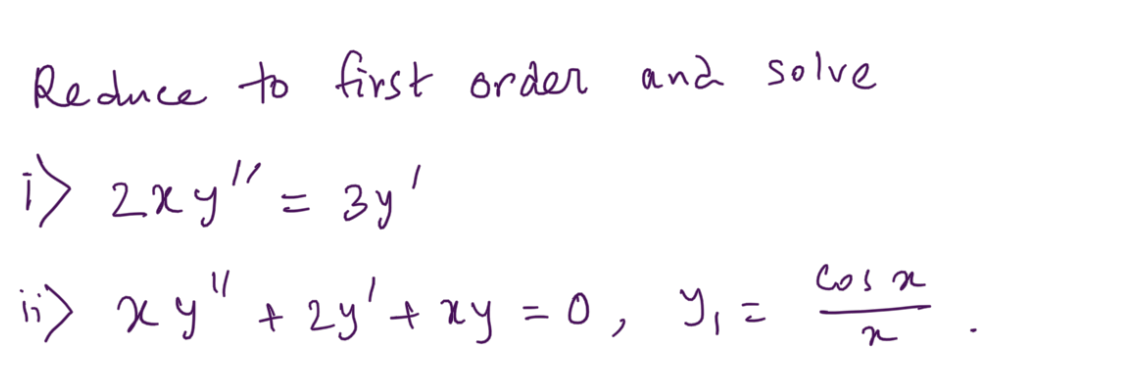 Reduce to first order and solve
i> 2xy'' = 3y'
ii> xy'' + 2y' + xy = 0, y₁ = cos x / x .